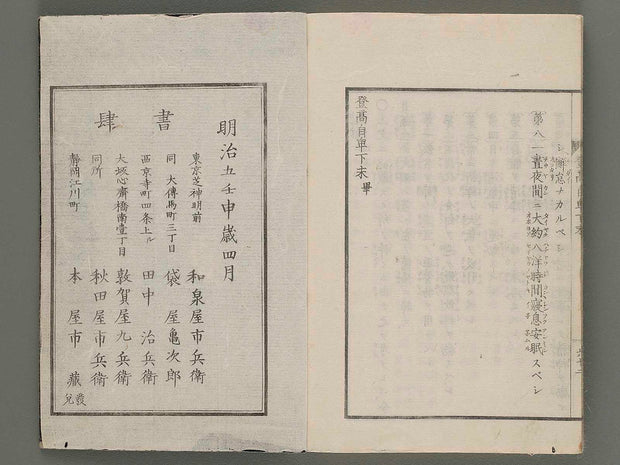 シ懈怠ナカルベシ
第八一晝夜間ニ大約八洋時間寢息安眠スベシ
登高自卑下末畢
明治五壬申歳四月
書肆
東京芝神明前 和泉屋市兵衛
同 大傳馬町三丁目 袋屋亀次郎
西京寺町四条上ル 田中治兵衛
大坂心齋橋南壹丁目 敦賀屋九兵衛
同所 秋田屋市兵衛
靜岡江川町 本屋市藏
發兌